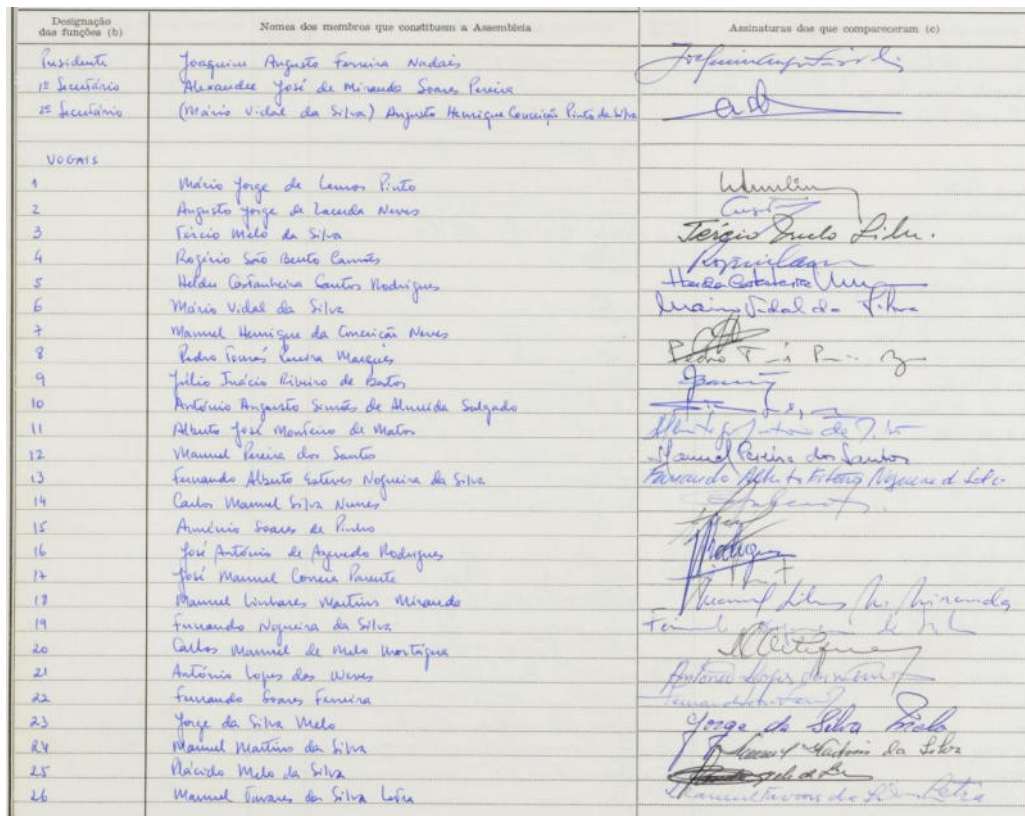 Designação das funções (b) Nomes dos membros que constituem a Assembleia Assinaturas dos que compareceram (c)
Presidente Joaquim Augusto Ferreira Nadais
1º Secretário Alexandre José de Miranda Soares Pereira
2º Secretário (Mário Vidal da Silva) Augusto Henrique Conceição Pinto da Silva
VOGAIS
1 Mário Jorge de Lemos Pinto
2 Augusto Jorge de Lacerda Neves
3 Tércio Melo da Silva Tércio Melo Silva.
4 Rogério São Bento Camões
5 Helder Castanheira Santos Rodrigues
6 Mário Vidal da Silva Mário Vidal da Silva
7 Manuel Henrique da Conceição Neves
8 Pedro Tomás Pereira Marques Pedro T
9 Júlio Inácio Ribeiro de Bastos
10 António Augusto Simões de Almeida Salgado
11 Alberto José Monteiro de Matos
12 Manuel Pereira dos Santos Manuel Pereira dos Santos
13 Fernando Alberto Esteves Nogueira da Silva Fernando Alberto Esteves Nogueira d Silva
14 Carlos Manuel Silva Nunes
15 Arménio Soares de Pinho
16 José António de Azevedo Rodrigues Rodrigues
17 José Manuel Correia Parente
18 Manuel Linhares Martins Miranda Manuel M. Miranda
19 Fernando Nogueira da Silva
20 Carlos Manuel de Melo Mortágua
21 António Lopes das Neves António Lopes das Neves
22 Fernando Soares Ferreira
23 Jorge da Silva Melo Jorge da Silva Melo
24 Manuel Martins da Silva Manuel Martins da Silva
25 Plácido Melo da Silva
26 Manuel Tavares da Silva Letra Manuel Tavares da Silva Letra